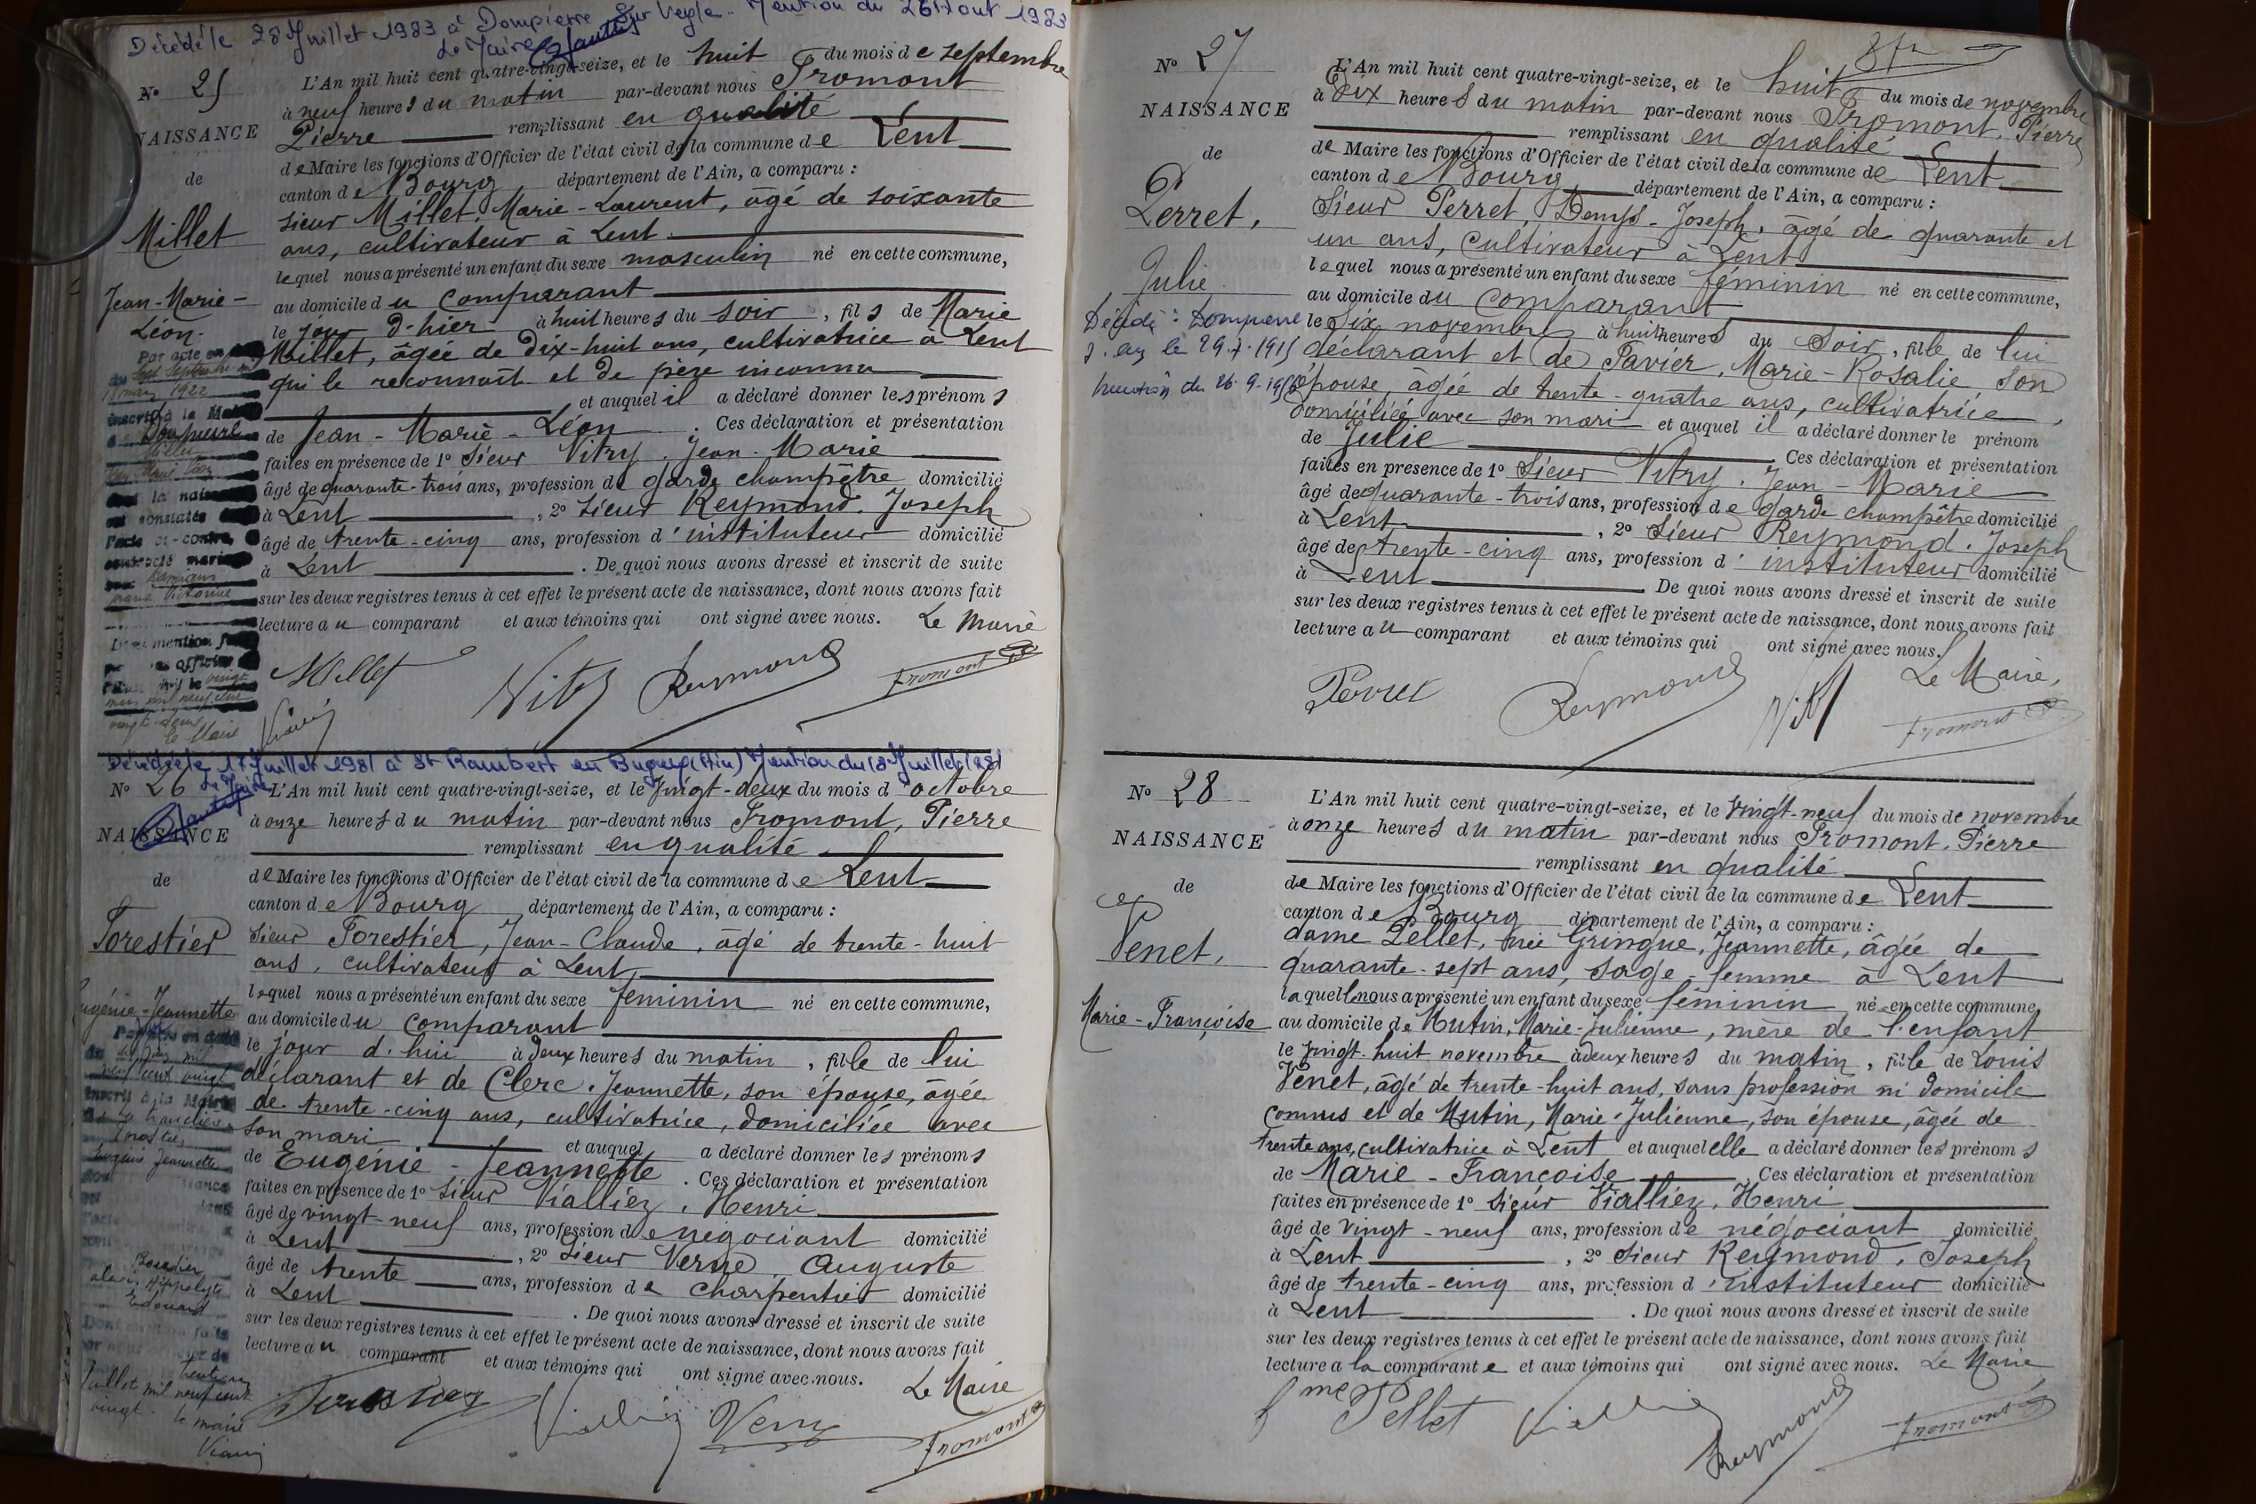 Décédé le 28 Juillet 1983 à Dompierre sur Veyle - Mention du 26 Aout 1983
Le Maire
N° 25
NAISSANCE
de
Millet
Jean-Marie-
Léon.
L'An mil huit cent quatre-vingt-seize, et le huit du mois de septembre
à neuf heures du matin par-devant nous Fromont
Pierre remplissant en qualité
de Maire les fonctions d'Officier de l'état civil de la commune de Lent
canton de Bourg département de l'Ain, a comparu :
sieur Millet, Marie-Laurent, âgé de soixante
ans, cultivateur à Lent
lequel nous a présenté un enfant du sexe masculin né en cette commune,
au domicile du comparant
le jour d'hier à huit heures du soir, fils de Marie
Millet, âgée de dix-huit ans, cultivatrice à Lent
qui le reconnait et de père inconnu
et auquel il a déclaré donner les prénoms
de Jean-Marie-Léon. Ces déclaration et présentation
faites en présence de 1° sieur Vitry, Jean-Marie
âgé de quarante-trois ans, profession de garde champêtre domicilié
à Lent, 2° sieur Reymond, Joseph
âgé de trente-cinq ans, profession d'instituteur domicilié
à Lent. De quoi nous avons dressé et inscrit de suite
sur les deux registres tenus à cet effet le présent acte de naissance, dont nous avons fait
lecture au comparant et aux témoins qui ont signé avec nous. Le Maire
Par acte en
1922
inscrit à la
Dompierre
Millet
Jean Marie Léon
dont la nais
est constatée
l'acte ci-contre, a
contracté mariage
avec
Marie
Dont mention
officier
vingt
mil neuf cent
vingt-deux
Le Maire
Millet Vitry Reymond Fromont
Décédée le 17 Juillet 1981 à St Rambert en Bugey (Ain) Mention du 18 Juillet 1981
Le Maire
N° 26
NAISSANCE
de
Forestier
Eugénie-Jeannette
L'An mil huit cent quatre-vingt-seize, et le vingt-deux du mois d'octobre
à onze heures du matin par-devant nous Fromont, Pierre
remplissant en qualité
de Maire les fonctions d'Officier de l'état civil de la commune de Lent
canton de Bourg département de l'Ain, a comparu :
sieur Forestier, Jean-Claude, âgé de trente-huit
ans, cultivateur à Lent,
lequel nous a présenté un enfant du sexe féminin né en cette commune,
au domicile du comparant
le jour d'hui à deux heures du matin, fille de lui
déclarant et de Clerc, Jeannette, son épouse, âgée
de trente-cinq ans, cultivatrice, domiciliée avec
son mari et auquel a déclaré donner les prénoms
de Eugénie-Jeannette. Ces déclaration et présentation
faites en présence de 1° sieur Vialliez, Henri
âgé de vingt-neuf ans, profession de négociant domicilié
à Lent, 2° sieur Verne, Auguste
âgé de trente ans, profession de charpentier domicilié
à Lent. De quoi nous avons dressé et inscrit de suite
sur les deux registres tenus à cet effet le présent acte de naissance, dont nous avons fait
lecture au comparant et aux témoins qui ont signé avec nous. Le Maire
mil
neuf cent vingt
inscrit à la Mairie
Eugénie Jeannette
Hippolyte
Edouard
Dont mention faite
Juillet mil neuf cent
vingt. le maire
Forestier Vialliez Verne Fromont
N° 27
NAISSANCE
de
Perret,
Julie.
L'An mil huit cent quatre-vingt-seize, et le huit du mois de novembre
à dix heures du matin par-devant nous Fromont, Pierre
remplissant en qualité
de Maire les fonctions d'Officier de l'état civil de la commune de Lent
canton de Bourg département de l'Ain, a comparu :
Sieur Perret, Denys-Joseph, âgé de quarante et
un ans, cultivateur à Lent
lequel nous a présenté un enfant du sexe féminin né en cette commune,
au domicile du comparant
le six novembre à huit heures du soir, fille de lui
déclarant et de Pavier, Marie-Rosalie son
épouse, âgée de trente-quatre ans, cultivatrice,
domiciliée avec son mari et auquel il a déclaré donner le prénom
de Julie Ces déclaration et présentation
faites en présence de 1° Sieur Vitry, Jean-Marie
âgé de quarante-trois ans, profession de garde champêtre domicilié
à Lent, 2° sieur Reymond, Joseph
âgé de trente-cinq ans, profession d'instituteur domicilié
à Lent De quoi nous avons dressé et inscrit de suite
sur les deux registres tenus à cet effet le présent acte de naissance, dont nous avons fait
lecture au comparant et aux témoins qui ont signé avec nous.
Le Maire,
Perret Reymond Fromont
N° 28
NAISSANCE
de
Venet,
Marie-Françoise
L'An mil huit cent quatre-vingt-seize, et le vingt-neuf du mois de novembre
à onze heures du matin par-devant nous Fromont, Pierre
remplissant en qualité
de Maire les fonctions d'Officier de l'état civil de la commune de Lent
canton de Bourg département de l'Ain, a comparu :
dame Pellet, née Gringue, Jeannette, âgée de
quarante-sept ans, sage-femme à Lent
laquelle nous a présenté un enfant du sexe féminin né en cette commune,
au domicile de Mutin, Marie-Julienne, mère de l'enfant
le vingt-huit novembre à deux heures du matin, fille de Louis
Venet, âgé de trente-huit ans, sans profession ni domicile
connus et de Mutin, Marie-Julienne, son épouse, âgée de
trente ans, cultivatrice à Lent et auquel elle a déclaré donner les prénoms
de Marie-Françoise Ces déclaration et présentation
faites en présence de 1° sieur Vialliez, Henri
âgé de vingt-neuf ans, profession de négociant domicilié
à Lent, 2° sieur Reymond, Joseph
âgé de trente-cinq ans, profession d'instituteur domicilié
à Lent. De quoi nous avons dressé et inscrit de suite
sur les deux registres tenus à cet effet le présent acte de naissance, dont nous avons fait
lecture a la comparante et aux témoins qui ont signé avec nous. Le Maire
Pellet Vialliez Reymond Fromont